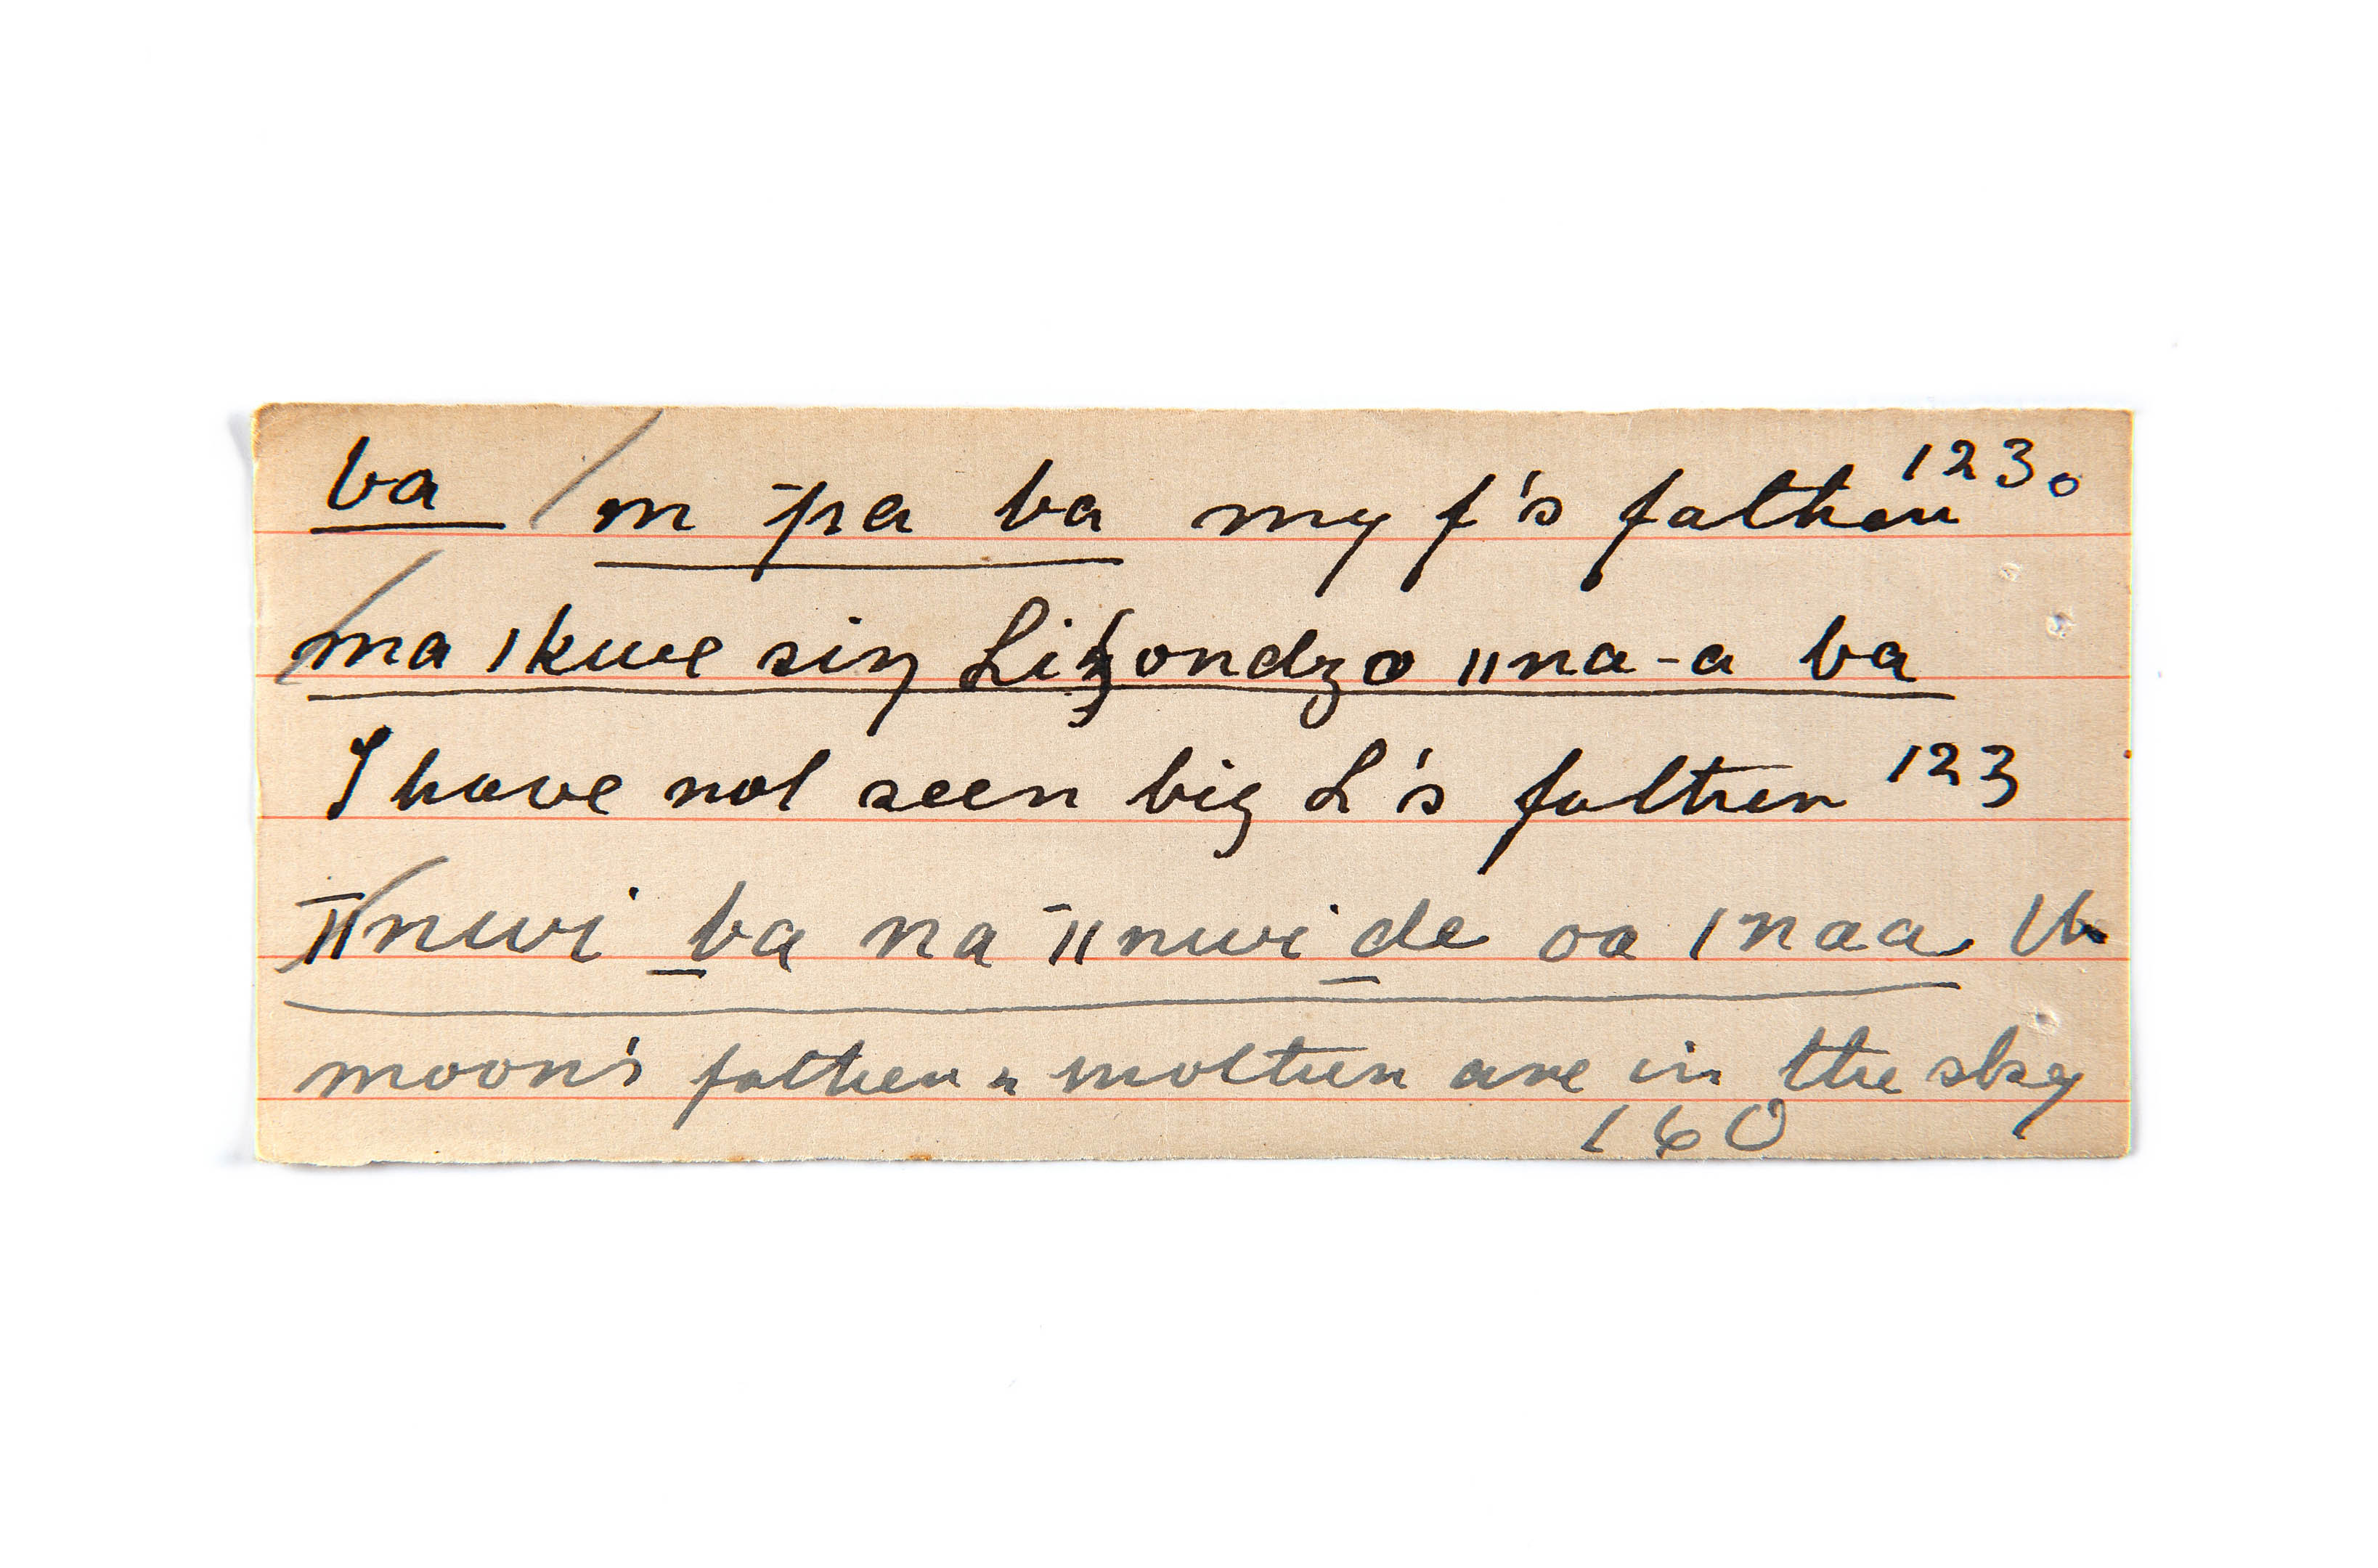 ba / m ̄pa ba my f's father 123o
ma ǀkwe siŋ Lihondzo ǁna-a ba
I have not seen big L's father 123
ǁ̄nwi ba na ǁ̄nwi de oa ǀnaa
moon's father & mother are in the sky
160